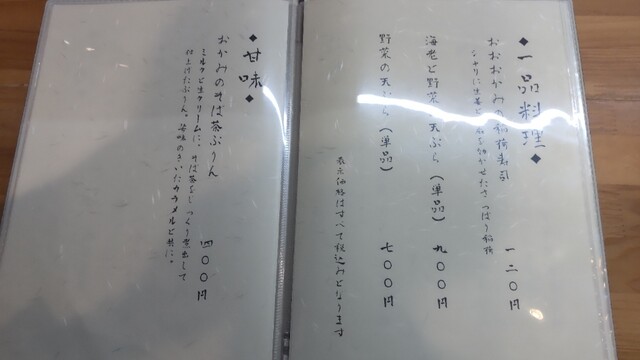 ◆一品料理◆
おおおかみの稲荷寿司
一二〇円
海老と野菜の天ぷら(単品)
九〇〇円
野菜の天ぷら(単品)
七〇〇円
表示価格はすべて税込みとなります
◆甘味◆
おかみのそば茶ぷりん
ミルクと生クリームに、そば茶をじっくり煮出して
四〇〇円
仕上げたぷりん。苦味のきいたカラメルと共に。